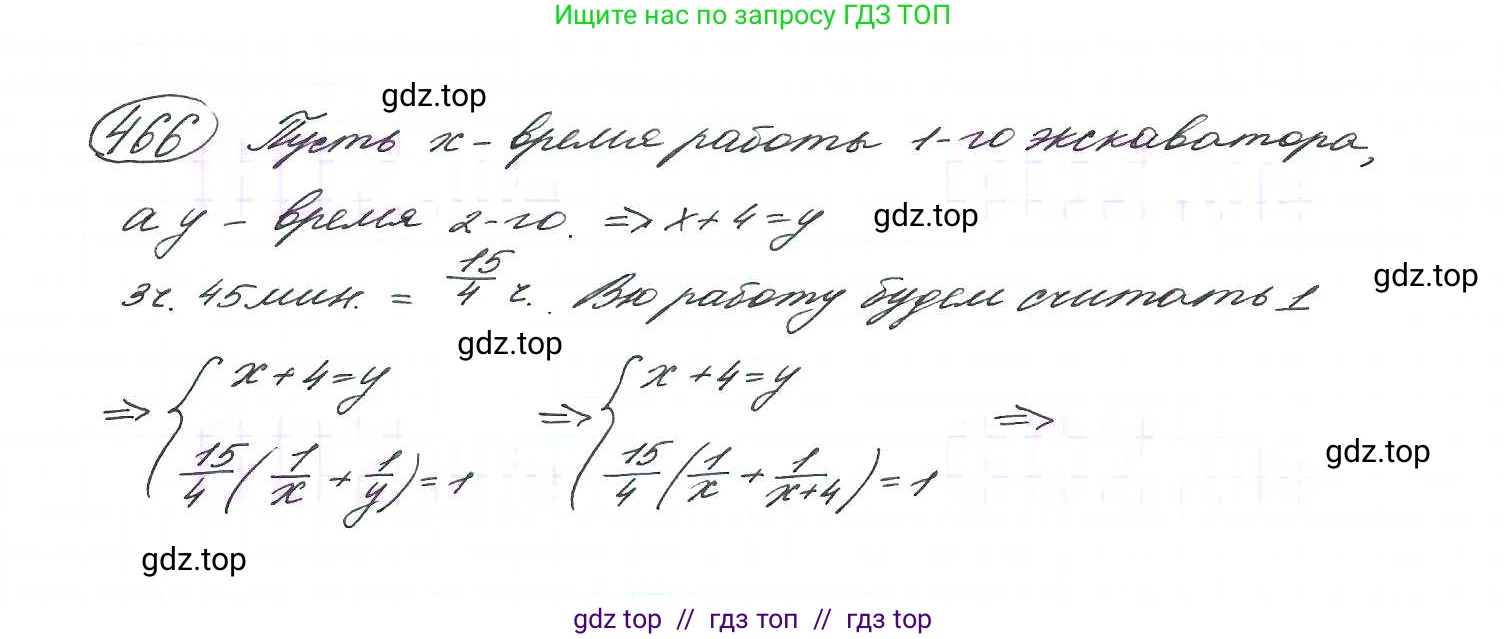 Ищите нас по запросу ГДЗ ТОП
gdz.top
466 Пусть x - время работы 1-го экскаватора,
а y - время 2-го. => x + 4 = y
gdz.top
gdz.top
3ч. 45мин. = 15/4 ч. Вю работу будем считать 1
gdz.top
=> { x + 4 = y => { x + 4 = y =>
15/4 (1/x + 1/y) = 1 15/4 (1/x + 1/(x+4)) = 1
gdz.top
gdz.top
gdz top // гдз топ // гдз top